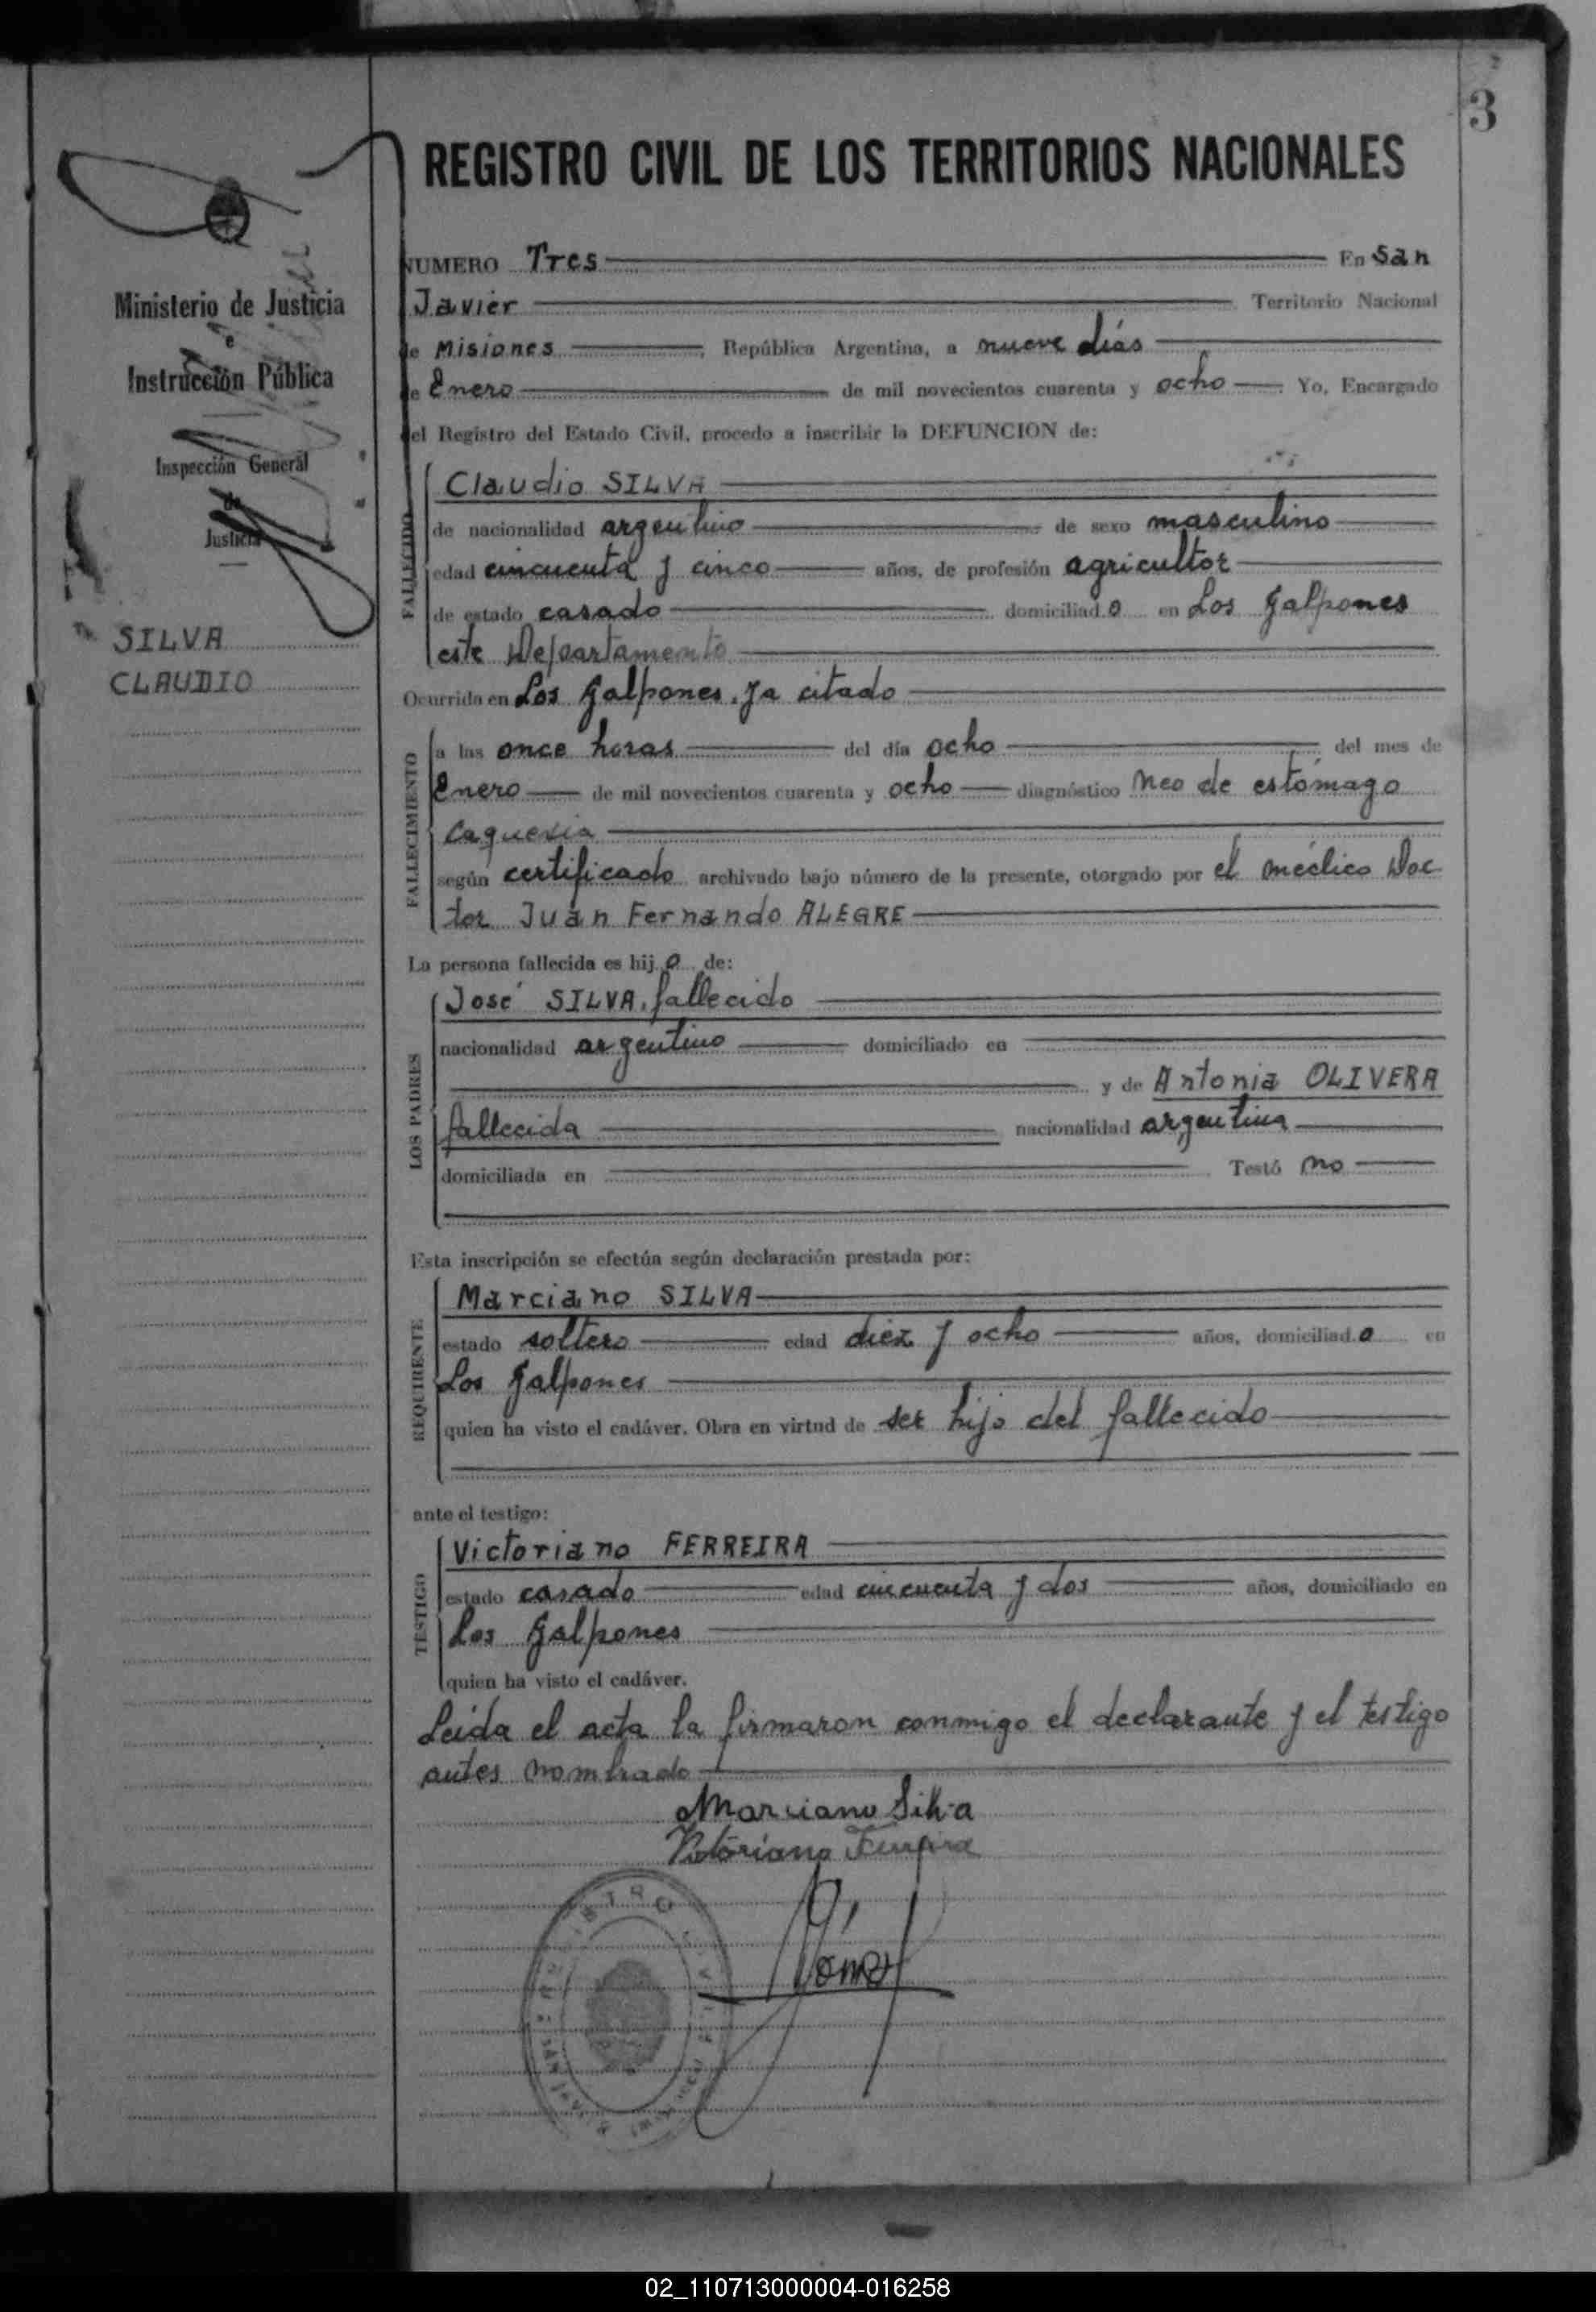 3
REGISTRO CIVIL DE LOS TERRITORIOS NACIONALES
Ministerio de Justicia
e
Instrucción Pública
Inspección General
de
Justicia
SILVA
CLAUDIO
NUMERO Tres En San
Javier Territorio Nacional
de Misiones, República Argentina, a nueve días
de Enero de mil novecientos cuarenta y ocho Yo, Encargado
del Registro del Estado Civil, procedo a inscribir la DEFUNCION de:
FALLECIDO
Claudio SILVA
de nacionalidad argentino de sexo masculino
edad cincuenta y cinco años, de profesión agricultor
de estado casado domiciliado en Los Galpones
este Departamento
Ocurrida en Los Galpones, ya citado
FALLECIMIENTO
a las once horas del día ocho del mes de
Enero de mil novecientos cuarenta y ocho diagnóstico Neo de estómago
Caquexia
según certificado archivado bajo número de la presente, otorgado por el médico Doc
tor Juan Fernando ALEGRE
La persona fallecida es hijo de:
LOS PADRES
José SILVA, fallecido
nacionalidad argentino domiciliado en
y de Antonia OLIVERA
fallecida nacionalidad argentina
domiciliada en Testó no
Esta inscripción se efectúa según declaración prestada por:
REQUIRENTE
Marciano SILVA
estado soltero edad diez y ocho años, domiciliado en
Los Galpones
quien ha visto el cadáver. Obra en virtud de ser hijo del fallecido
ante el testigo:
TESTIGO
Victoriano FERREIRA
estado casado edad cincuenta y dos años, domiciliado en
Los Galpones
quien ha visto el cadáver.
Leída el acta la firmaron conmigo el declarante y el testigo
antes nombrado
Marciano Silva
Victoriano Ferreira
02_110713000004-016258